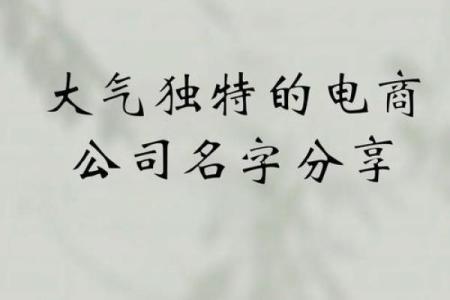 大气独特的电商
公司名字分享